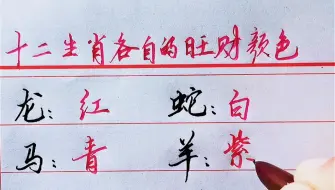 十二生肖各自的旺财颜色
龙：红 蛇：白
马：青 羊：紫